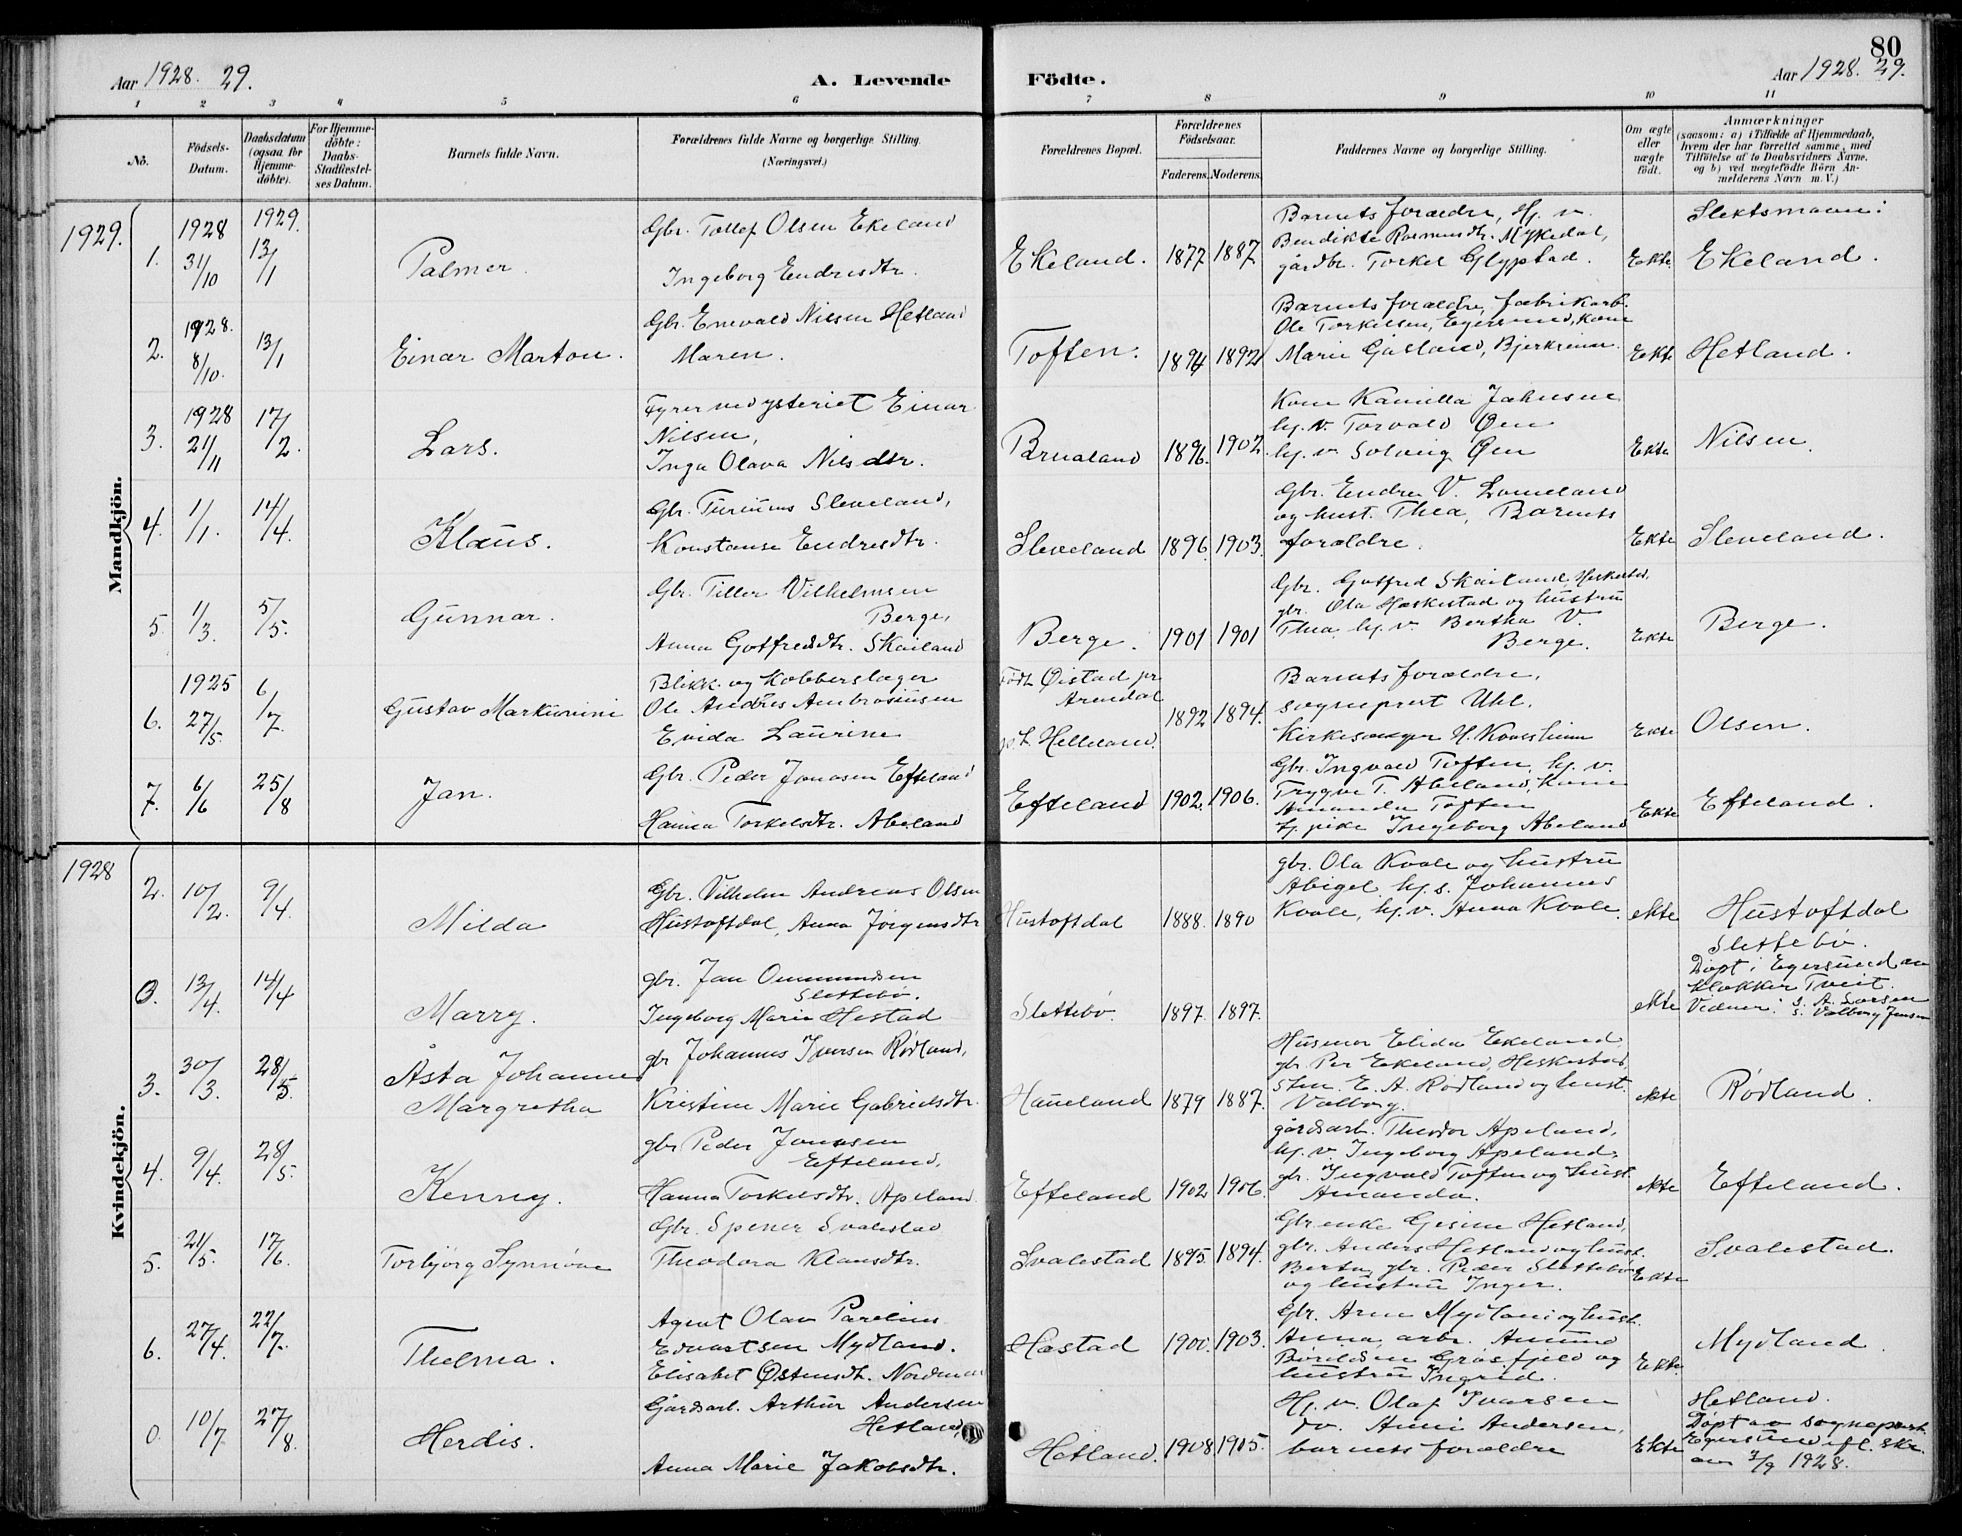 80
Aar 1928. 29.
A. Levende Födte.
Aar 1928. 29.
1 2 3 4 5 6 7 8 9 10 11
No.
Födsels-Datum.
Daabsdatum (ogsaa for Hjemme-döbte).
For Hjemme-döbte: Daabs-Stadfæstel-ses Datum.
Barnets fulde Navn.
Forældrenes fulde Navne og borgerlige Stilling. (Næringsvei.)
Forældrenes Bopæl.
Forældrenes Födselsaar.
Faderens. Moderens.
Faddernes Navne og borgerlige Stilling.
Om ægte eller uægte födt.
Anmærkninger
(saasom: a) i Tilfælde af Hjemmedaab,
hvem der har forrettet samme, med
Tilföielse af to Daabsvidners Navne,
og b) ved uægtefödte Börn An-
melderens Navn m. V.)
Mandkjön.
1929.
1. 1928 31/10
1929. 13/1
Palmer.
Gbr. Tollef Olsen Ekeland
Ingeborg Endresdtr.
Ekeland. 1877 1887
Barnets forældre, Hj. v.
Bendikte Rasmusdtr. Mykedal,
gårdbr. Torkel Glypstad.
Ekte.
Slektsnavn:
Ekeland.
2. 1928. 8/10.
13/1
Einar Marton.
Gbr. Enevald Nilsen Hetland
Maren.
Toften. 1894 1892
Barnets forældre, fabrikarb.
Ole Torkelsen, Egersund, kone
Marie Gåsland, Bjerkreim.
Ekte
Hetland.
3. 1928 21/11
17/2.
Lars.
Fyrer ved ysteriet Einar
Nilsen,
Inga Olava Nilsdtr.
Brualand 1896. 1902.
Kone Kamilla Jahnsen
hj. v. Torvald Øen
hj. v. Solveig Øen
Ekte
Nilsen.
4. 1/1.
14/4.
Klaus.
Gbr. Sleveland,
Konstanse Endresdtr.
Sleveland 1896 1903.
Gbr. Endre V. Lomeland
og hust. Thea, Barnets
forældre.
Ekte
Sleveland.
5 1/3.
5/5.
Gunnar.
Gbr. Tiller Vilhelmsen
Berge,
Anna Gotfredsdtr. Skåiland
Berge. 1901 1901
Gbr. Gotfred Skåiland, Heskestad,
gbr. Ola Heskestad og hustru
Thea, hj. v. Bertha V.
Berge.
Ekte
Berge.
6. 1925 27/5.
6/7.
Gustav Markunini
Blikk- og Kobberslager
Ole Andres Ambrosiusen
Evida Laurine
Født Øistad pr
Arendal
p. t. Helleland.
1892 1894.
Barnets forældre,
sogneprest Uhl.
Kirkesanger H. Kvassheim
Ekte
Olsen.
7. 6/6
25/8
Jan.
Gbr. Peder Jonasen Efteland
Hanna Torkelsdtr. Abeland
Efteland 1902. 1906.
Gbr. Ingvald Toften, hj. v.
Trygve T. Abeland, kone
Amanda Toften
hj. pike Ingeborg Abeland
Ekte
Efteland.
Kvindekjön.
1928
2. 10/2.
9/4.
Milda
Gbr. Vilhelm Andreas Olsen
Hustoftdal, Anna Jörgensdtr
Hustoftdal 1888. 1890
gbr. Ola Kvale og hustru
Abigel, hj. s. Johannes
Kvale, hj. v. Anna Kvale.
ekte
Hustoftdal
0. 13/4.
14/4
Marry.
gbr. Jan Ommundsen
Slettebø.
Ingeborg Marie Hestad
Slettebø. 1897. 1897.
ekte
Slettebø.
Døpt i Egersund av
klokker Tveit.
Vidner: S. A. Larsen
S. Valborg Jensen
3. 30/3.
28/5.
Åsta Johanne
Margretha
gbr Johannes Iversen Rødland,
Kristine Marie Gabrielsdtr.
Haueland 1879 1887.
Husmor Elida Ekeland
gbr. Per Ekeland, Heskestad,
Sten. E. A. Rødland og hust.
Valborg.
ekte
Rødland.
4. 9/4.
28/5.
Kenny.
gbr Peder Jonasen
Efteland,
Hanna Torkelsdtr. Apeland
Efteland 1902 1906.
gårdsarb. Theodor Apeland,
hj. v. Ingeborg Apeland,
gbr. Ingvald Toften og hust.
Amanda.
ekte
Efteland.
5. 21/5.
17/6.
Torbjörg Synnöve
Gbr. Spener Svalestad
Theodora Klausdtr.
Svalestad 1895. 1894.
Gbr enke Gesine Hetland,
gbr. Anders Hetland og hust.
Berta, gbr. Peder Slettebø
og hustru Inger.
Ekte
Svalestad.
6. 27/4.
22/7.
Thelma.
Agent Olav Parelius
Edvartsen Mydland.
Elisabet Østensdtr. Nordman
Hæstad 1900. 1903.
Gbr. Arne Mydland og hust.
Anna, arbr. Amund
Bårdsen Gråsfjeld og
hustru Ingrid.
Ekte.
Mydland.
0. 10/7
27/8.
Herdis.
Gårdsarb. Arthur Andersen
Hetland,
Anna Marie Jakobsdtr.
Hetland. 1908 1905.
Hj. v. Olaf Ivarsen
do. Anni Andersen,
barnets forældre
Ekte
Hetland.
Døpt av sogneprest
Egersund ifl. skr.
av 3/9 1928.